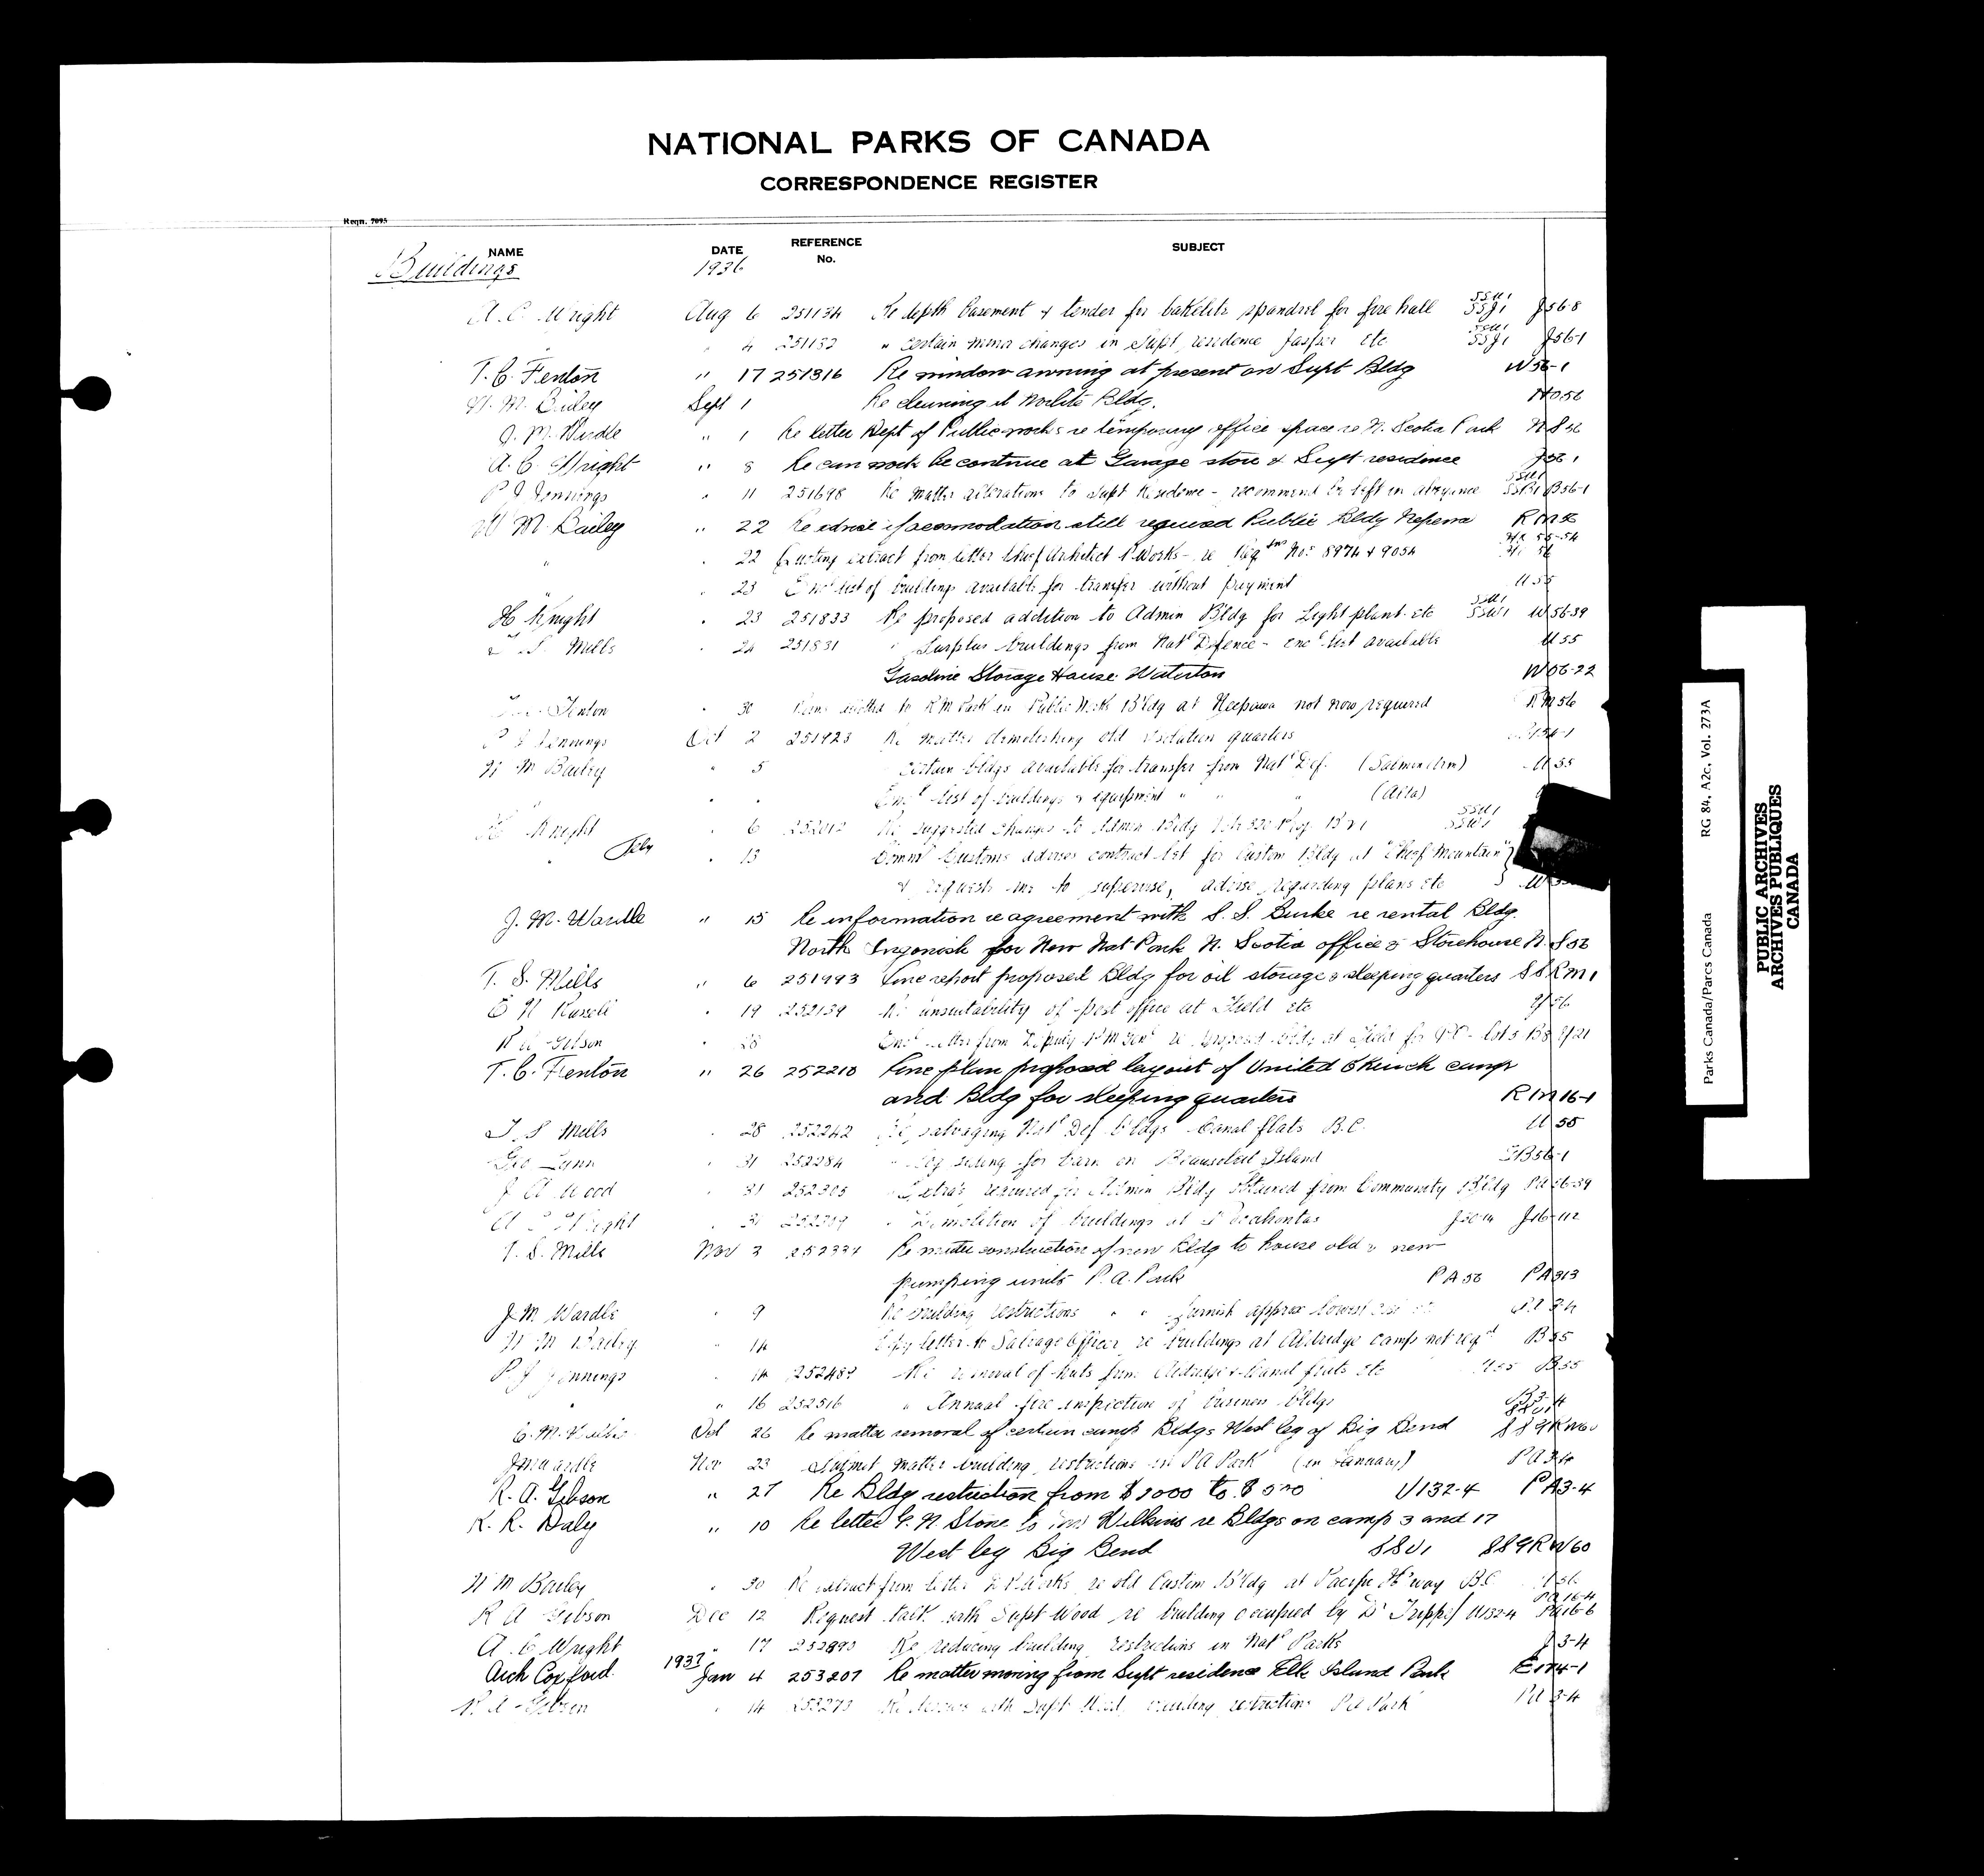 NATIONAL PARKS OF CANADA
CORRESPONDENCE REGISTER
Reqn. 7095
NAME DATE REFERENCE No. SUBJECT
Buildings 1936
A. C. Wright Aug 6 251134 Re depth basement & tender for bakelite spandrel for fire hall SSU1 SSJ1 J56-8
" 4 251132 " certain minor changes in Supt. residence Jasper etc SSU1 SSJ1 J56-1
T. C. Fenton " 17 251316 Re window awning at present on Supt Bldg W56-1
W. M. Bailey Sept 1 Re cleaning at Norlite Bldg. HO56
J. M. Wardle " 1 Re letter Dept of Public works re temporary office space re N. Scotia Park NS56
A. C. Wright " 8 Re can work be continue at Garage store & Supt residence J56-1
P J Jennings " 11 251698 Re matter alterations to Supt Residence - recommend be left in abeyance SSU1 SSB1 B56-1
W M. Bailey " 22 Re advice if accomodation still required Public Bldg Neepawa RM56
" 22 Quoting extract from letter Chief Architect P. Works - re Reqtns Nos 8974 & 9054
" 23 Encl list of buildings available for transfer without payment U55
H. Knight " 23 251833 Re proposed addition to Admin Bldg for Light plant etc SSU1 SSW1 W56-39
T. S. Mills " 24 251831 " Surplus buildings from Natl Defence - encl list available U55
Gasoline Storage House Waterton W56-22
Fenton " 30 Rooms allotted to R M Park in Public Work Bldg at Neepawa not now required RM56
P J Jennings Oct 2 251923 Re matter demolishing old isolation quarters
W M Bailey " 5 certain bldgs available for transfer from Natl Def. (Salmon Arm) U55
" " Encl list of buildings & equipment " " " 
H Knight " 6 252012 Re suggested changes to Admin Bldg SSU1 SSW1
" 13 Comml Customs advises contract let for Custom Bldg at "Chief Mountain"
& requests me to supervise, advise regarding plans etc
J. M. Wardle " 15 Re information re agreement with S. S. Burke re rental Bldg.
North Ingonish for New Nat Park N. Scotia office & Storehouse N.S56
T. S. Mills " 6 251993 Fire report proposed Bldg for oil storage & sleeping quarters SSRM1
E N Russell " 19 252139 Re unsuitability of post office at Field etc Y56
R A Gibson " 28 Encl letter from Deputy P M Genl re proposed bldg at Field for P.O. - Lot 5 B8 Y21
T. C. Fenton " 26 252210 Fire plan proposed layout of United Church camp
and Bldg for sleeping quarters RM16-1
T. S Mills " 28 252242 Re salvaging Natl Def bldgs Canal flats B.C. U55
Geo Lynn " 31 252284 " log siding for barn on Beausoleil Island GB56-1
J A Wood " 31 252305 " Extra's required for Admin Bldg obtained from Community Bldg PA56-39
A C Wright " 31 " Demolition of buildings at Pocahontas J16-112
T. S. Mills Nov 3 252334 Re matter construction of new Bldg to house old & new
pumping units P. A. Park PA56 PA313
J M Wardle " 9 Re building restrictions " " furnish approx lowest cost PA3-4
W M Bailey " 14 Copy letter to Salvage Officer re buildings at Aldridge camp not reqd B55
P J Jennings " 14 252489 Re removal of huts from Aldridge & Canal flats etc U55 B55
" " 16 252516 " Annual fire inspection of business bldgs B3-4
Oct 26 Re matter removal of certain camp Bldgs West leg of Big Bend SSU1 SSGRW60
J M Wardle Nov 23 Submit matter building restrictions in P A Park (in January) PA3-4
R. A. Gibson " 27 Re Bldg restriction from $1000 to $500 U132-4 PA3-4
R. R. Daly " 10 Re letter G. N. Stone to Wilkins re Bldgs on camp 3 and 17
West leg Big Bend SSU1 SSGRW60
W M Bailey " 30 Re extract from letter D P Works re old Custom Bldg at Pacific H'way BC
R A Gibson Dec 12 Request talk with Supt Wood re building occupied by Dr Tripp U132-4 PA16-4 PA16-6
A. C. Wright " 17 252893 Re reducing building restrictions in Natl Parks J3-4
Arch Coxford. 1937 Jan 4 253207 Re matter moving from Supt residence Elk Island Park E174-1
R A Gibson " 14 253273 Re discuss with Supt Wood, building restrictions P A Park PA3-4
RG 84, A2c, Vol. 273A
Parks Canada/Parcs Canada
PUBLIC ARCHIVES
ARCHIVES PUBLIQUES
CANADA